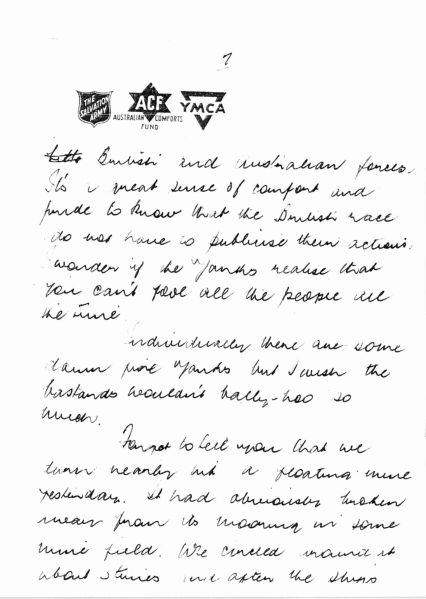 7
THE SALVATION ARMY
ACF
AUSTRALIAN COMFORTS FUND
YMCA
British and Australian forces.
It's a great sense of comfort and
pride to know that the British race
do not have to publicise their actions.
wonder if the "Yanks realise that
you can't fool all the people all
the time
Individually there are some
damn fine Yanks but I wish the
bastards wouldn't bally-hoo so
much.
Forgot to tell you that we
damn nearly hit a floating mine
yesterday. It had obviously broken
away from its mooring in some
mine field. We circled round it
about times and after the ships